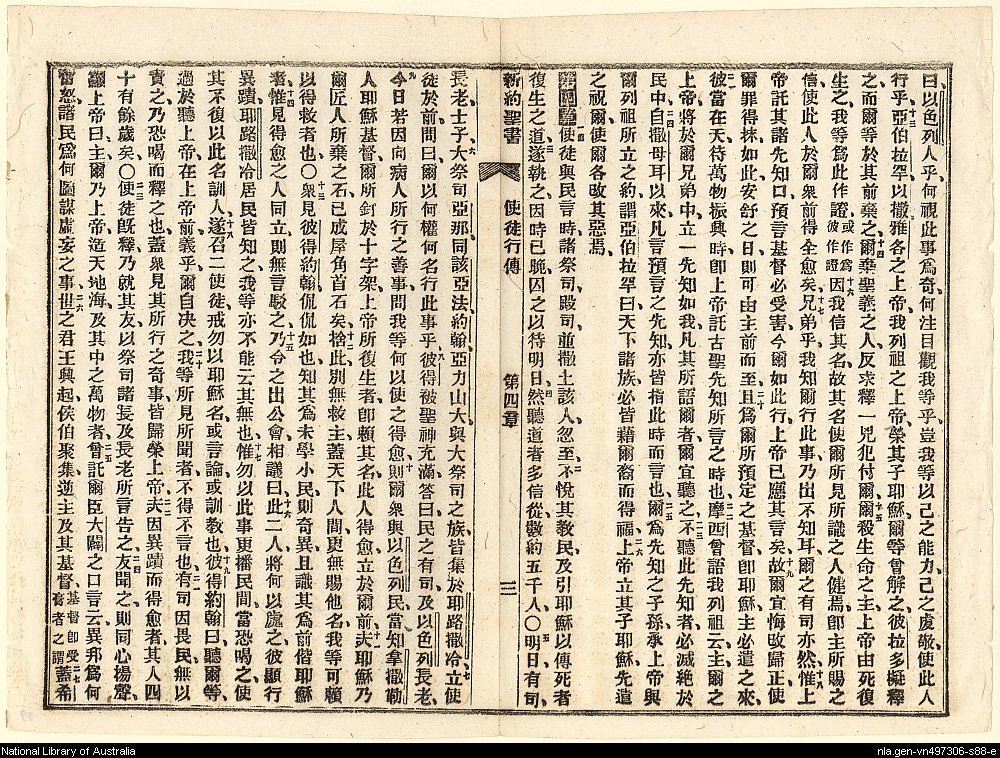 曰以色列人乎何視此事爲奇何注目觀我等乎豈我等以己之能力己之虔敬使此人
行乎十三亞伯拉罕以撒雅各之上帝我列祖之上帝榮其子耶穌爾等曾解之彼拉多擬釋
之而爾等於其前棄之十四爾棄聖義之人反求釋一兇犯付爾十五爾殺生命之主上帝由死復
生之我等爲此作證或作爲彼作證十六因我信其名故其名使爾所見所識之人健焉卽主所賜之
信使此人於爾衆前得全愈矣十七兄弟乎我知爾行此事乃出不知耳爾之有司亦然十八惟上
帝託其諸先知口預言基督必受害今爾如此行上帝已應其言矣十九故爾宜悔改歸正使
爾罪得抹如此安舒之日則可由主前而至二十且爲爾所預定之基督卽耶穌主必遣之來
二一彼當在天待萬物振興時卽上帝託古聖先知所言之時也二二摩西曾語我列祖云主爾之
上帝將於爾兄弟中立一先知如我凡其所語爾者爾宜聽之二三不聽此先知者必滅絕於
民中二四自撒母耳以來凡言預言之先知亦皆指此時而言也二五爾爲先知之子孫承上帝與
爾列祖所立之約謂亞伯拉罕曰天下諸族必皆藉爾裔而得福二六上帝立其子耶穌先遣
之視爾使爾各改其惡焉
第四章一節使徒與民言時諸祭司殿司並撒土該人忽至二不悅其教民及引耶穌以傳死者
復生之道三遂執之因時已晚囚之以待明日四然聽道者多信從數約五千人〇五明日有司
新約聖書 使徒行傳 第四章 三
長老士子六大祭司亞那同該亞法約翰亞力山大與大祭司之族皆集於耶路撒冷七立使
徒於前問曰爾以何權何名行此事乎八彼得被聖神充滿答曰民之有司及以色列長老
九今日若因向病人所行之善事問我等何以使之得愈十則爾衆與以色列民當知拿撒勒
人耶穌基督爾所釘於十字架上帝所復生者卽賴其名此人得愈立於爾前十一夫耶穌乃
爾匠人所棄之石已成屋角首石矣十二捨此別無救主蓋天下人間更無賜他名我等可賴
以得救者也〇十三衆見彼得約翰侃侃如也知其爲未學小民則奇異且識其爲前偕耶穌
者十四惟見得愈之人同立則無言駁之十五乃令之出公會相議曰十六此二人將何以處之彼顯行
異蹟耶路撒冷居民皆知之我等亦不能云其無也十七惟勿以此事更播民間當恐喝之使
其不復以此名訓人十八遂召二使徒戒勿以耶穌名或言論或訓教也十九彼得約翰曰聽爾等
過於聽上帝在上帝前義乎爾自决之二十我等所見所聞者不得不言也二一有司因畏民無以
責之乃恐喝而釋之也蓋衆見其所行之奇事皆歸榮上帝二二夫因異蹟而得愈者其人四
十有餘歲矣〇二三使徒旣釋乃就其友以祭司諸長及長老所言告之二四友聞之則同心揚聲
籲上帝曰主爾乃上帝造天地海及其中之萬物者二五曾託爾臣大闢之口言云異邦爲何
奮怒諸民爲何圖謀虛妄之事二六世之君王興起侯伯聚集逆主及其基督基督卽受膏者之謂二七蓋希
National Library of Australia
nla.gen-vn497306-s88-e